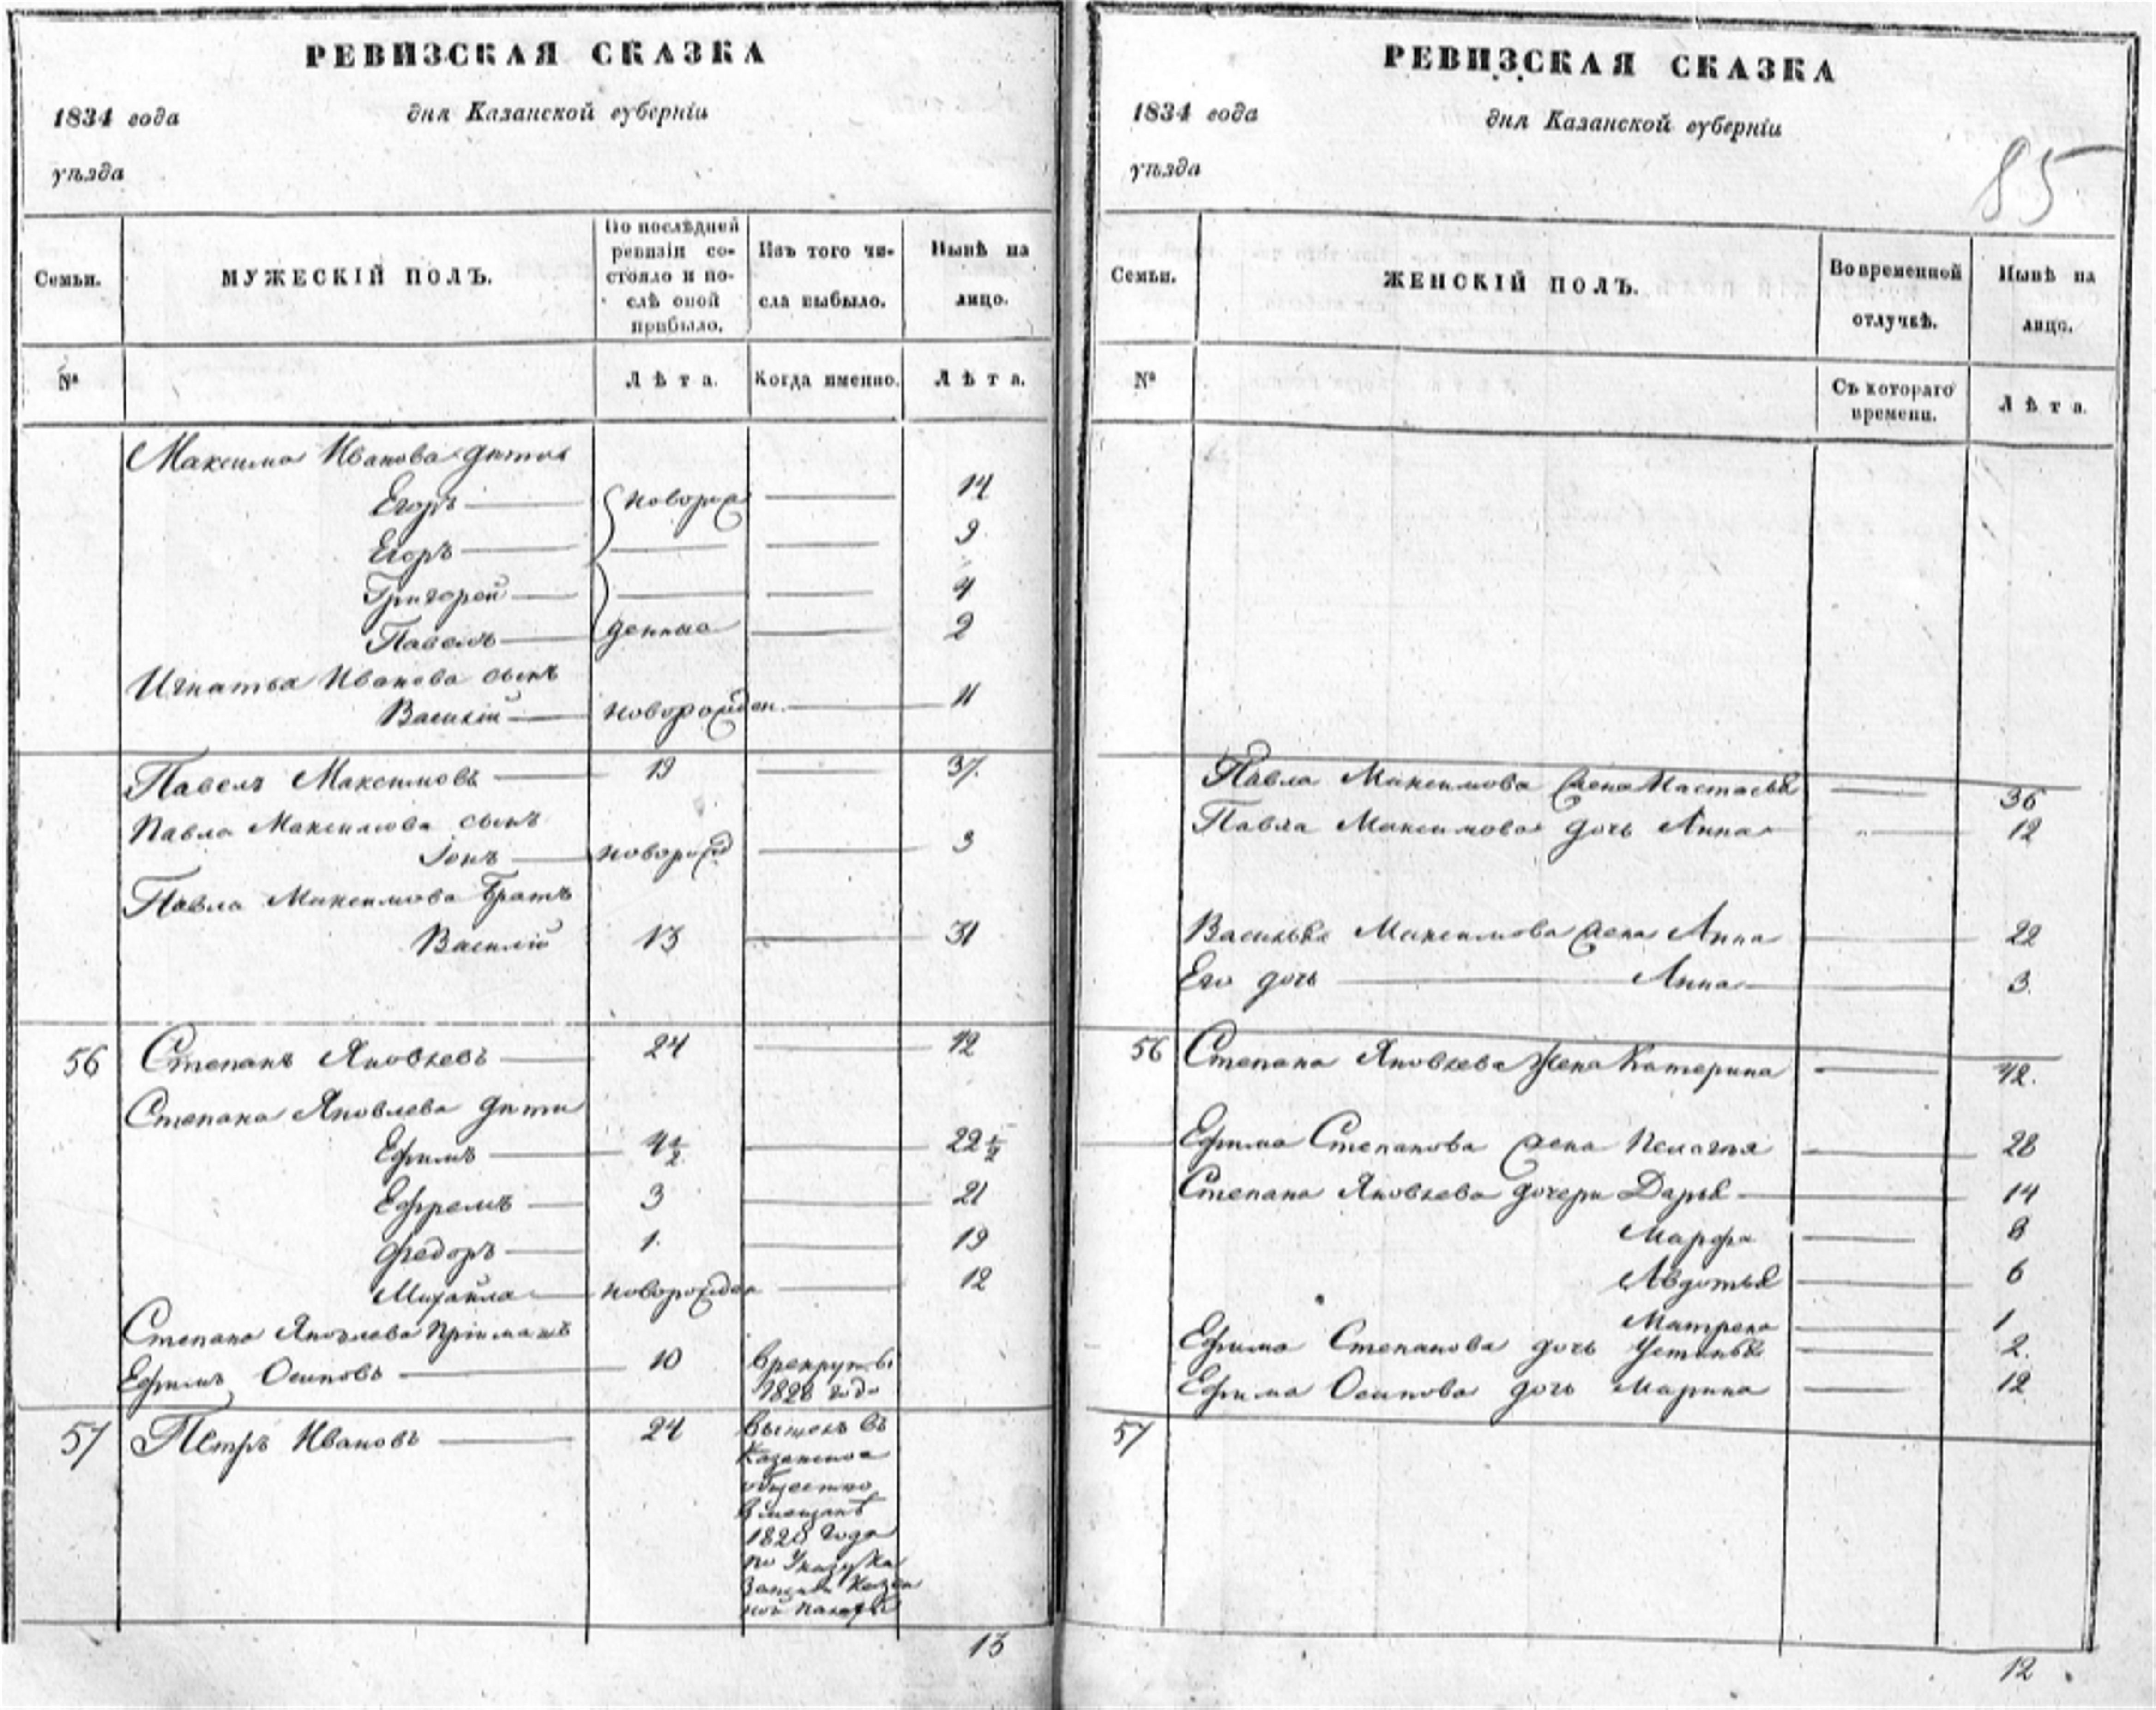 РЕВИЗСКАЯ СКАЗКА
1834 года
дня Казанской губерніи
уѣзда
Семьи.
МУЖЕСКІЙ ПОЛЪ.
По послѣдней ревизіи со-
стояло и по-
слѣ оной
прибыло.
Изъ того чи-
сла выбыло.
Нынѣ на
лицо.
№
Лѣта.
Когда именно.
Лѣта.
Максима Иванова дѣти
Егоръ новорож 14
Егоръ 9
Григорей 4
Павелъ денные 2
Игнатья Иванова сынъ
Василій новорожден. 11
Павелъ Максимовъ 19 37.
Павла Максимова сынъ
Іонъ новорожд 3
Павла Максимова братъ
Василій 13 31
56 Степанъ Яковлевъ 24 42
Степана Яковлева дѣти
Ефимъ 4½ 22½
Ефремъ 3 21
Федоръ 1. 19
Михайла новорожден 12
Степана Яковлева пріимашъ
Ефимъ Осиповъ 10 врекруты
1828 года
57 Петръ Ивановъ 24 Вышелъ въ
Казанское
общество
вмещанѣ
1828 года
по Указу Ка
занской Казен
ной палаты
13
РЕВИЗСКАЯ СКАЗКА
1834 года
дня Казанской губерніи
уѣзда
85
Семьи.
ЖЕНСКІЙ ПОЛЪ.
Во временной
отлучкѣ.
Нынѣ на
лицо.
№
Съ котораго
времени.
Лѣта.
Павла Максимова жена Настасья 36
Павла Максимова дочь Анна 12
Василья Максимова жена Анна 22
Его дочь Анна 3.
56 Степана Яковлева жена Катерина 42.
Ефима Степанова жена Пелагея 28
Степана Яковлева дочери Дарья 14
Марфа 8
Авдотья 6
Матрена 1
Ефима Степанова дочь Устинья 2.
Ефима Осипова дочь Марина 12
57
12